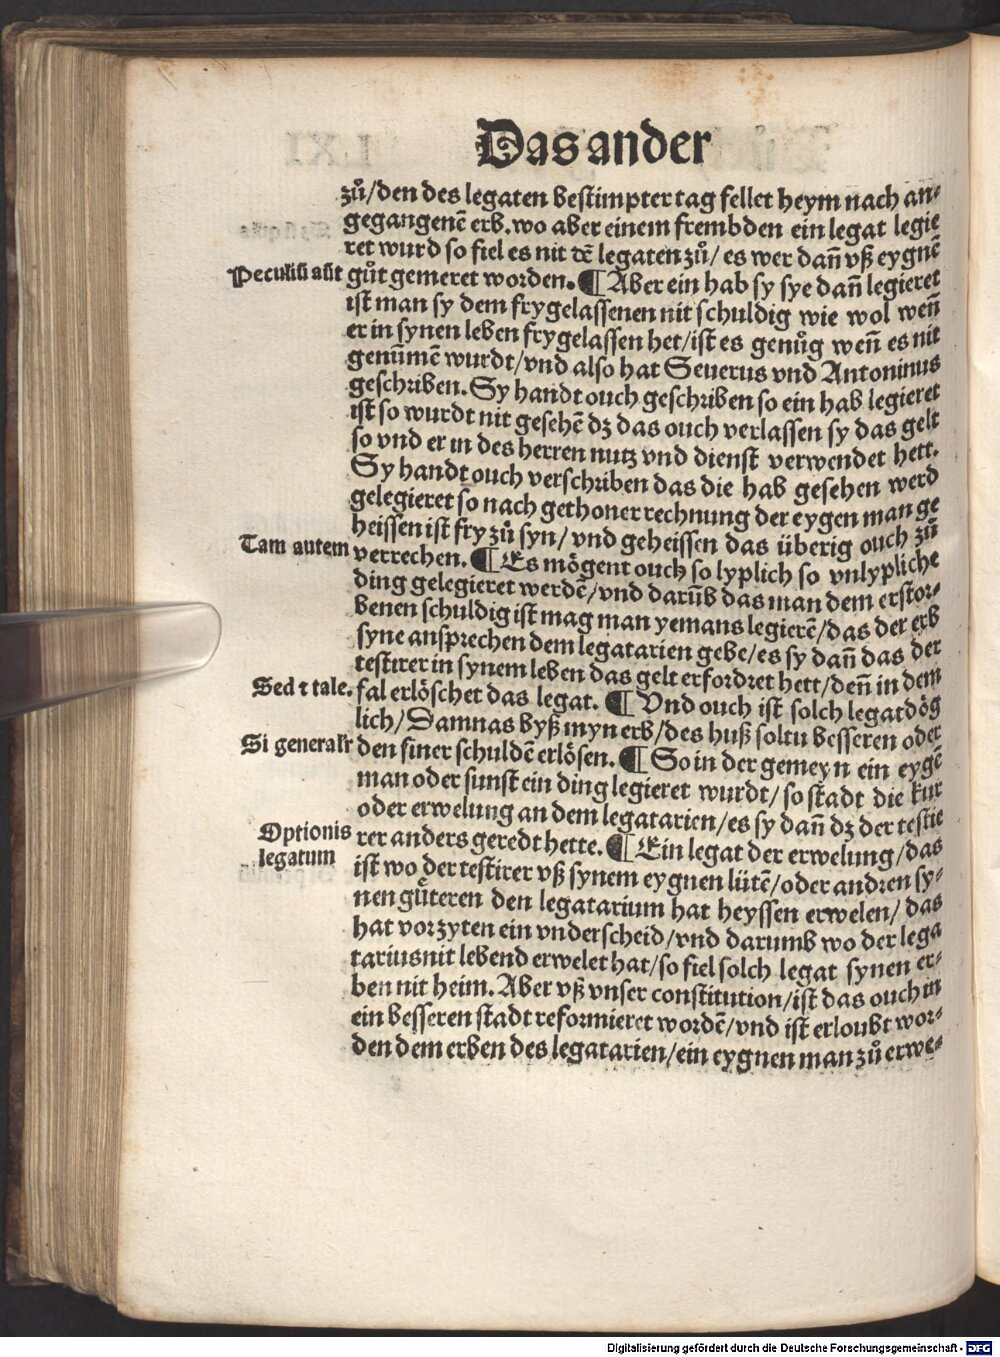 Das ander
zů/den des legaten bestimpter tag fellet heym nach an⸗
gegangenē erb. wo aber einem frembden ein legat legie
ret wurd so fiel es nit dē legaten zů/ es wer dañ vß eygnē
Peculiū aūt
gůt gemeret worden. ¶ Aber ein hab sy sye dañ legieret
ist man sy dem frygelassenen nit schuldig wie wol weñ
er in synen leben frygelassen het/ist es genůg weñ es nit
genūmē wurdt/vnd also hat Seuerus vnd Antoninus
geschriben. Sy handt ouch geschriben so ein hab legieret
ist so wurdt nit gesehē dz das ouch verlassen sy das gelt
so vnd er in des herren nutz vnd dienst verwendet hett.
Sy handt ouch verschriben das die hab gesehen werd
gelegieret so nach gethoner rechnung der eygen man ge
heissen ist fry zů syn/ vnd geheissen das überig ouch zů
Tam autem
verrechen. ¶ Es mögent ouch so lyplich so vnlypliche
ding gelegieret werdē/vnd darūb das man dem erstor⸗
benen schuldig ist mag man yemans legierē/das der erb
syne ansprechen dem legatarien gebe/es sy dañ das der
testirer in synem leben das gelt erfordret hett/deñ in dem
Sed ⁊ tale.
fal erlöschet das legat. ¶ Vnd ouch ist solch legat dög
lich/Damnas byß myn erb/des huß soltu besseren oder
Si generalr
den siner schuldē erlösen. ¶ So in der gemeyn ein eygē
man oder sunst ein ding legieret wurdt/ so stadt die kur
oder erwelung an dem legatarien/es sy dañ dz der testie
Optionis
legatum
rer anders geredt hette. ¶ Ein legat der erwelung/das
ist wo der testirer vß synem eygnen lütē/oder andren sy⸗
nen gůteren den legatarium hat heyssen erwelen/ das
hat vorzyten ein vnderscheid/vnd darumb wo der lega
tarius nit lebend erwelet hat/so fiel solch legat synen er⸗
ben nit heim. Aber vß vnser constitution/ist das ouch in
ein besseren stadt reformieret wordē/vnd ist erloubt wor⸗
den dem erben des legatarien/ein eygnen man zů erwe⸗
Digitalisierung gefördert durch die Deutsche Forschungsgemeinschaft - DFG